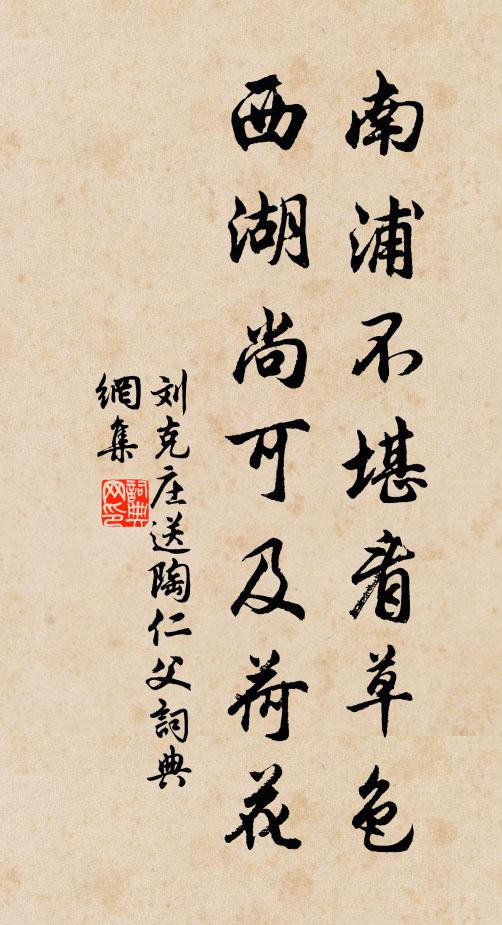 南浦不堪看草色
西湖尚可及荷花
刘克庄送陶仁父詞典
網集
詞典
网印